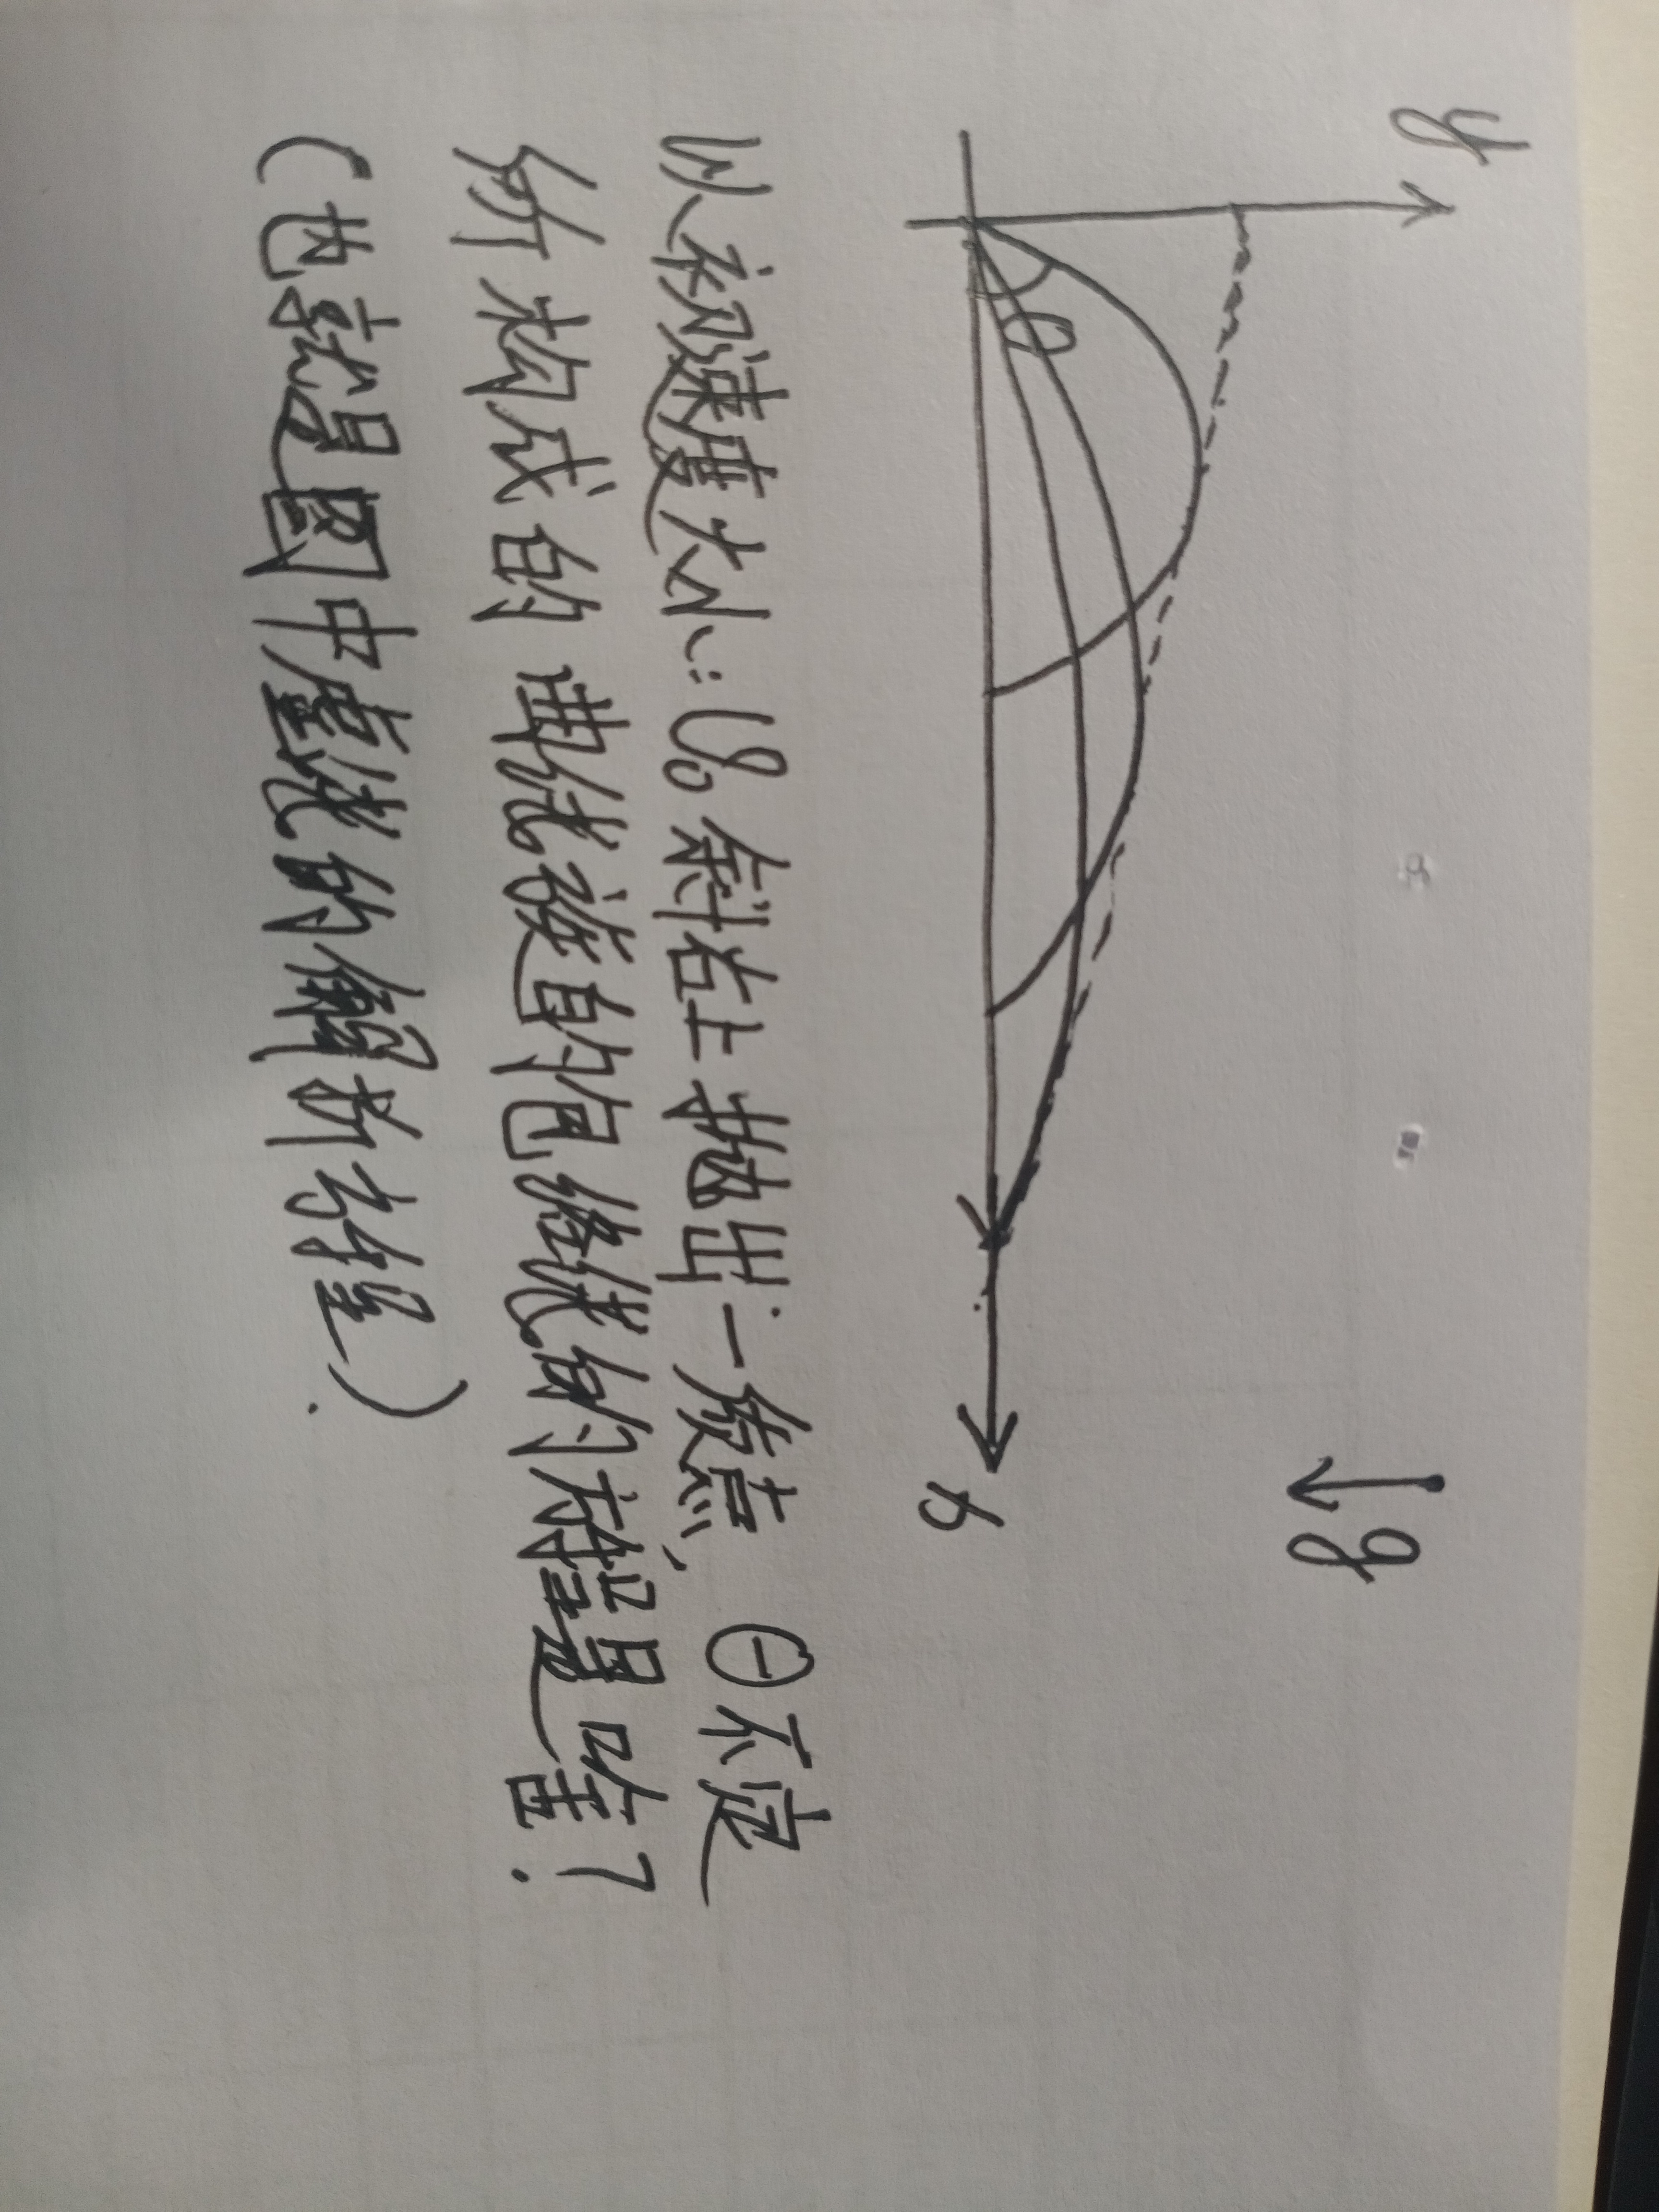 y
g
θ
x
以初速度大小:v₀斜右上抛出一质点, θ不定
所构成的曲线族的包络线的方程是啥?
(也就是图中虚线的解析方程).